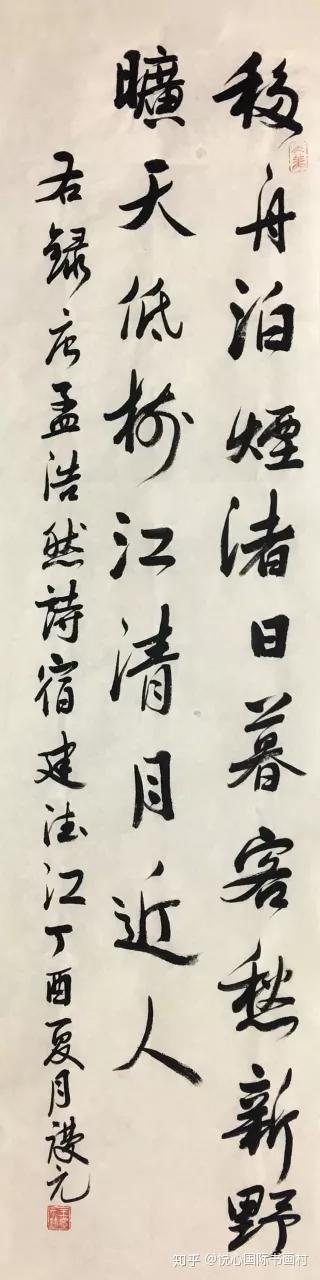 移舟泊煙渚日暮客愁新野
曠天低樹江清月近人
右錄唐孟浩然詩宿建德江丁酉夏月謾元
知乎 @悦心国际书画村